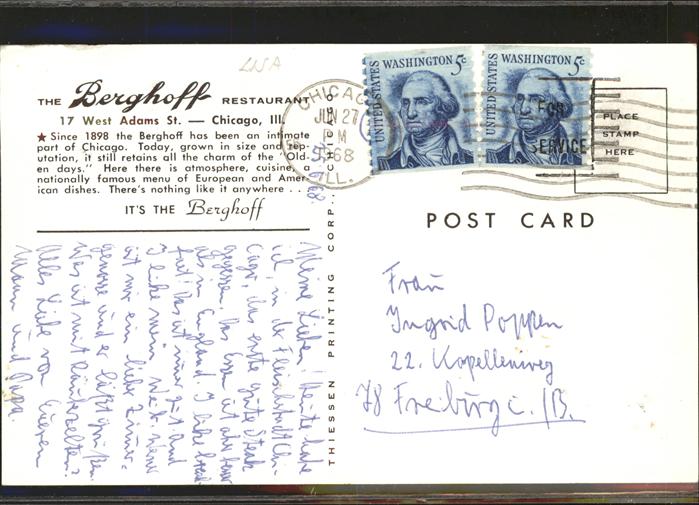 USA
THE Berghoff RESTAURANT
17 West Adams St. — Chicago, Ill.
★ Since 1898 the Berghoff has been an intimate
part of Chicago. Today, grown in size and rep-
utation, it still retains all the charm of the "Old-
en days." Here there is atmosphere, cuisine,
nationally famous menu of European and Amer-
ican dishes. There's nothing like it anywhere . . .
IT'S THE Berghoff
THIESSEN PRINTING CORP., CHICAGO
CHICAGO
JUN 27
PM
1968
ILL.
UNITED STATES WASHINGTON 5c
UNITED STATES WASHINGTON 5c
FOR
SERVICE
PLACE
STAMP
HERE
POST CARD
Meine Lieben! Heute habe
ich in der Fleischstadt Chi-
cago, das erste gute Steak
gegessen. Das Essen ist aber
als in England. I like
ist mir ein lieber
genosse und er läßt grüßen.
Was ist mit
Alles Liebe von Eurem
Mann und Papa.
Frau
Ingrid Poppen
22. Kapellenweg
78 Freiburg i. /B.